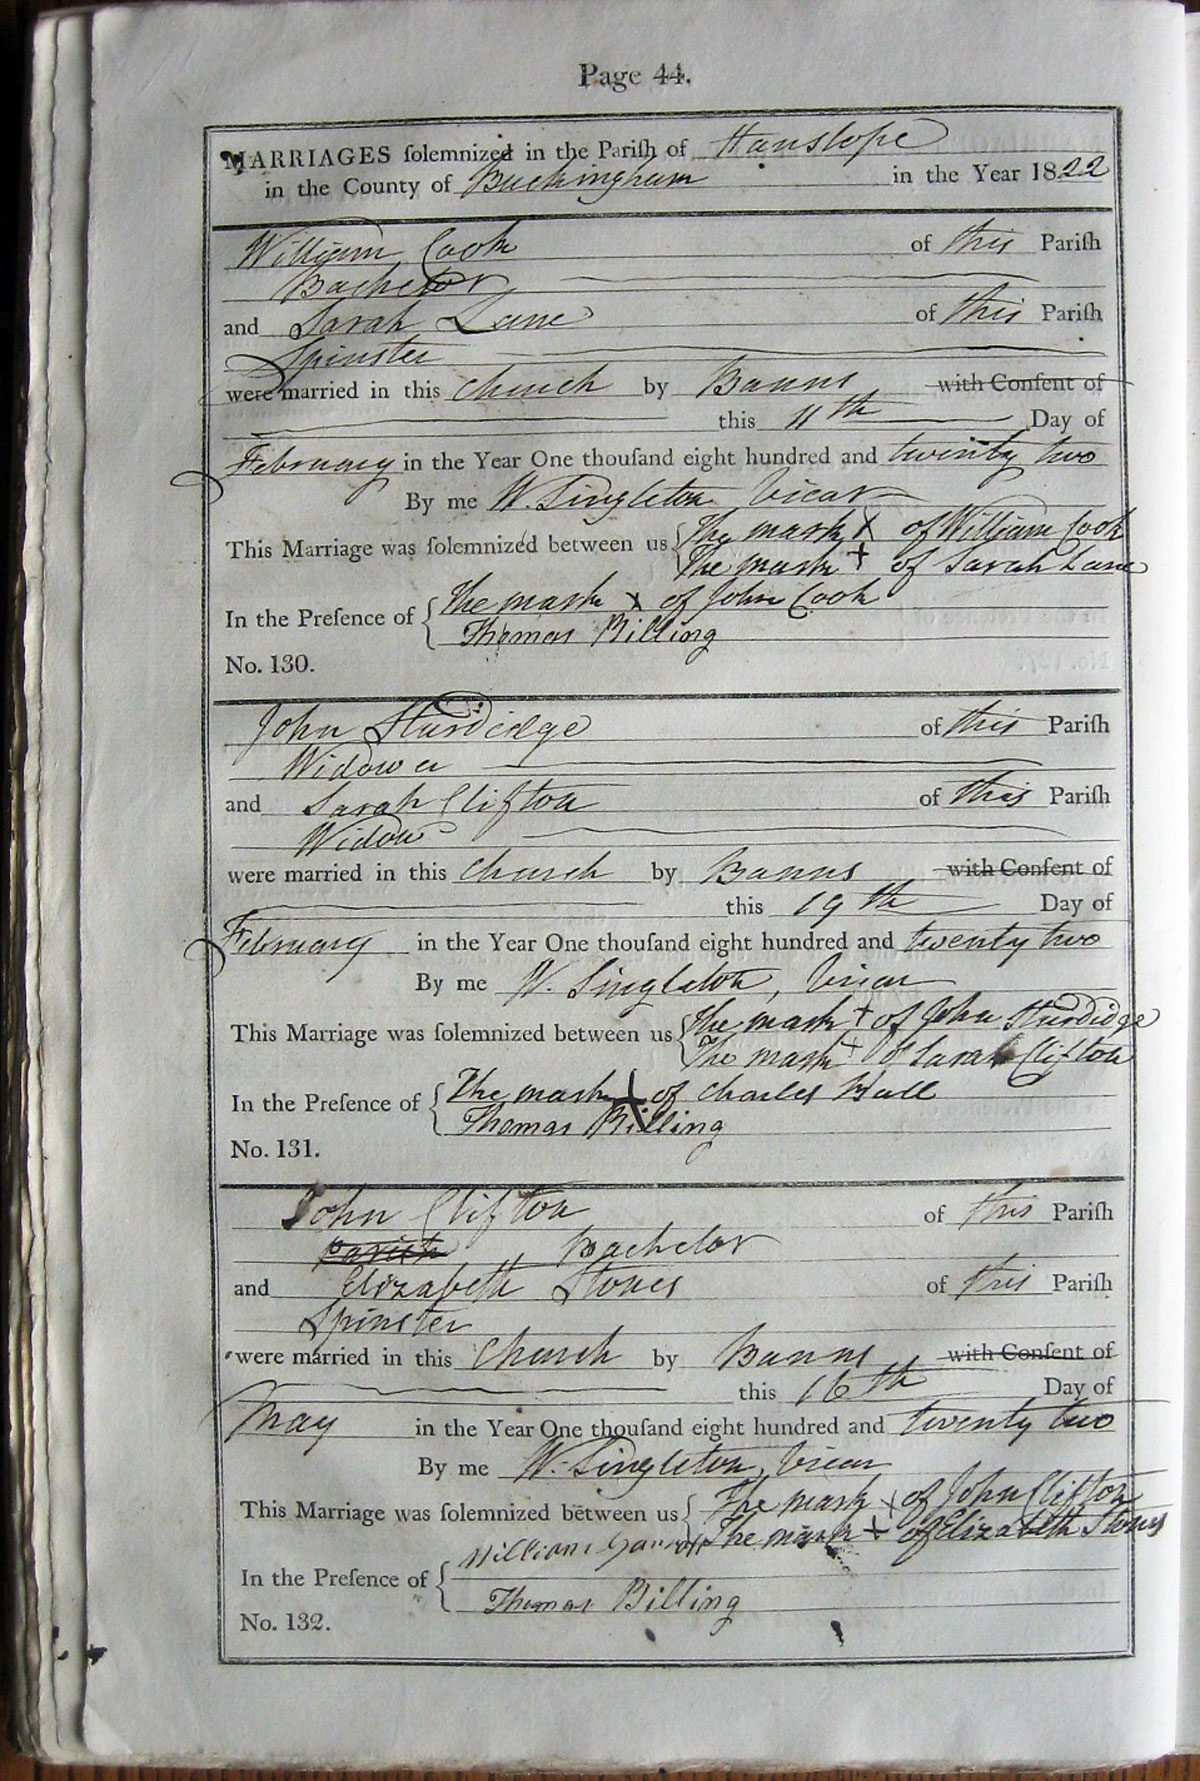 Page 44.
MARRIAGES ſolemnized in the Pariſh of Hanslope
in the County of Buckingham in the Year 1822
William Cook of this Pariſh
Bachelor
and Sarah Lane of this Pariſh
Spinster
were married in this Church by Banns with Conſent of
this 11th Day of
February in the Year One thouſand eight hundred and twenty two
By me W. Singleton Vicar
This Marriage was ſolemnized between us The mark X of William Cook
The mark + of Sarah Lane
In the Preſence of The mark x of John Cook
Thomas Billing
No. 130.
John Sturdidge of this Pariſh
Widower
and Sarah Clifton of this Pariſh
Widow
were married in this Church by Banns with Conſent of
this 19th Day of
February in the Year One thouſand eight hundred and twenty two
By me W. Singleton, Vicar
This Marriage was ſolemnized between us The mark + of John Sturdidge
The mark + of Sarah Clifton
In the Preſence of The mark + of Charles Hall
Thomas Billing
No. 131.
John Clifton of this Pariſh
Parish Bachelor
and Elizabeth Stones of this Pariſh
Spinster
were married in this Church by Banns with Conſent of
this 16th Day of
May in the Year One thouſand eight hundred and twenty two
By me W. Singleton, Vicar
This Marriage was ſolemnized between us The mark x of John Clifton
The mark + of Elizabeth Stones
In the Preſence of William
Thomas Billing
No. 132.